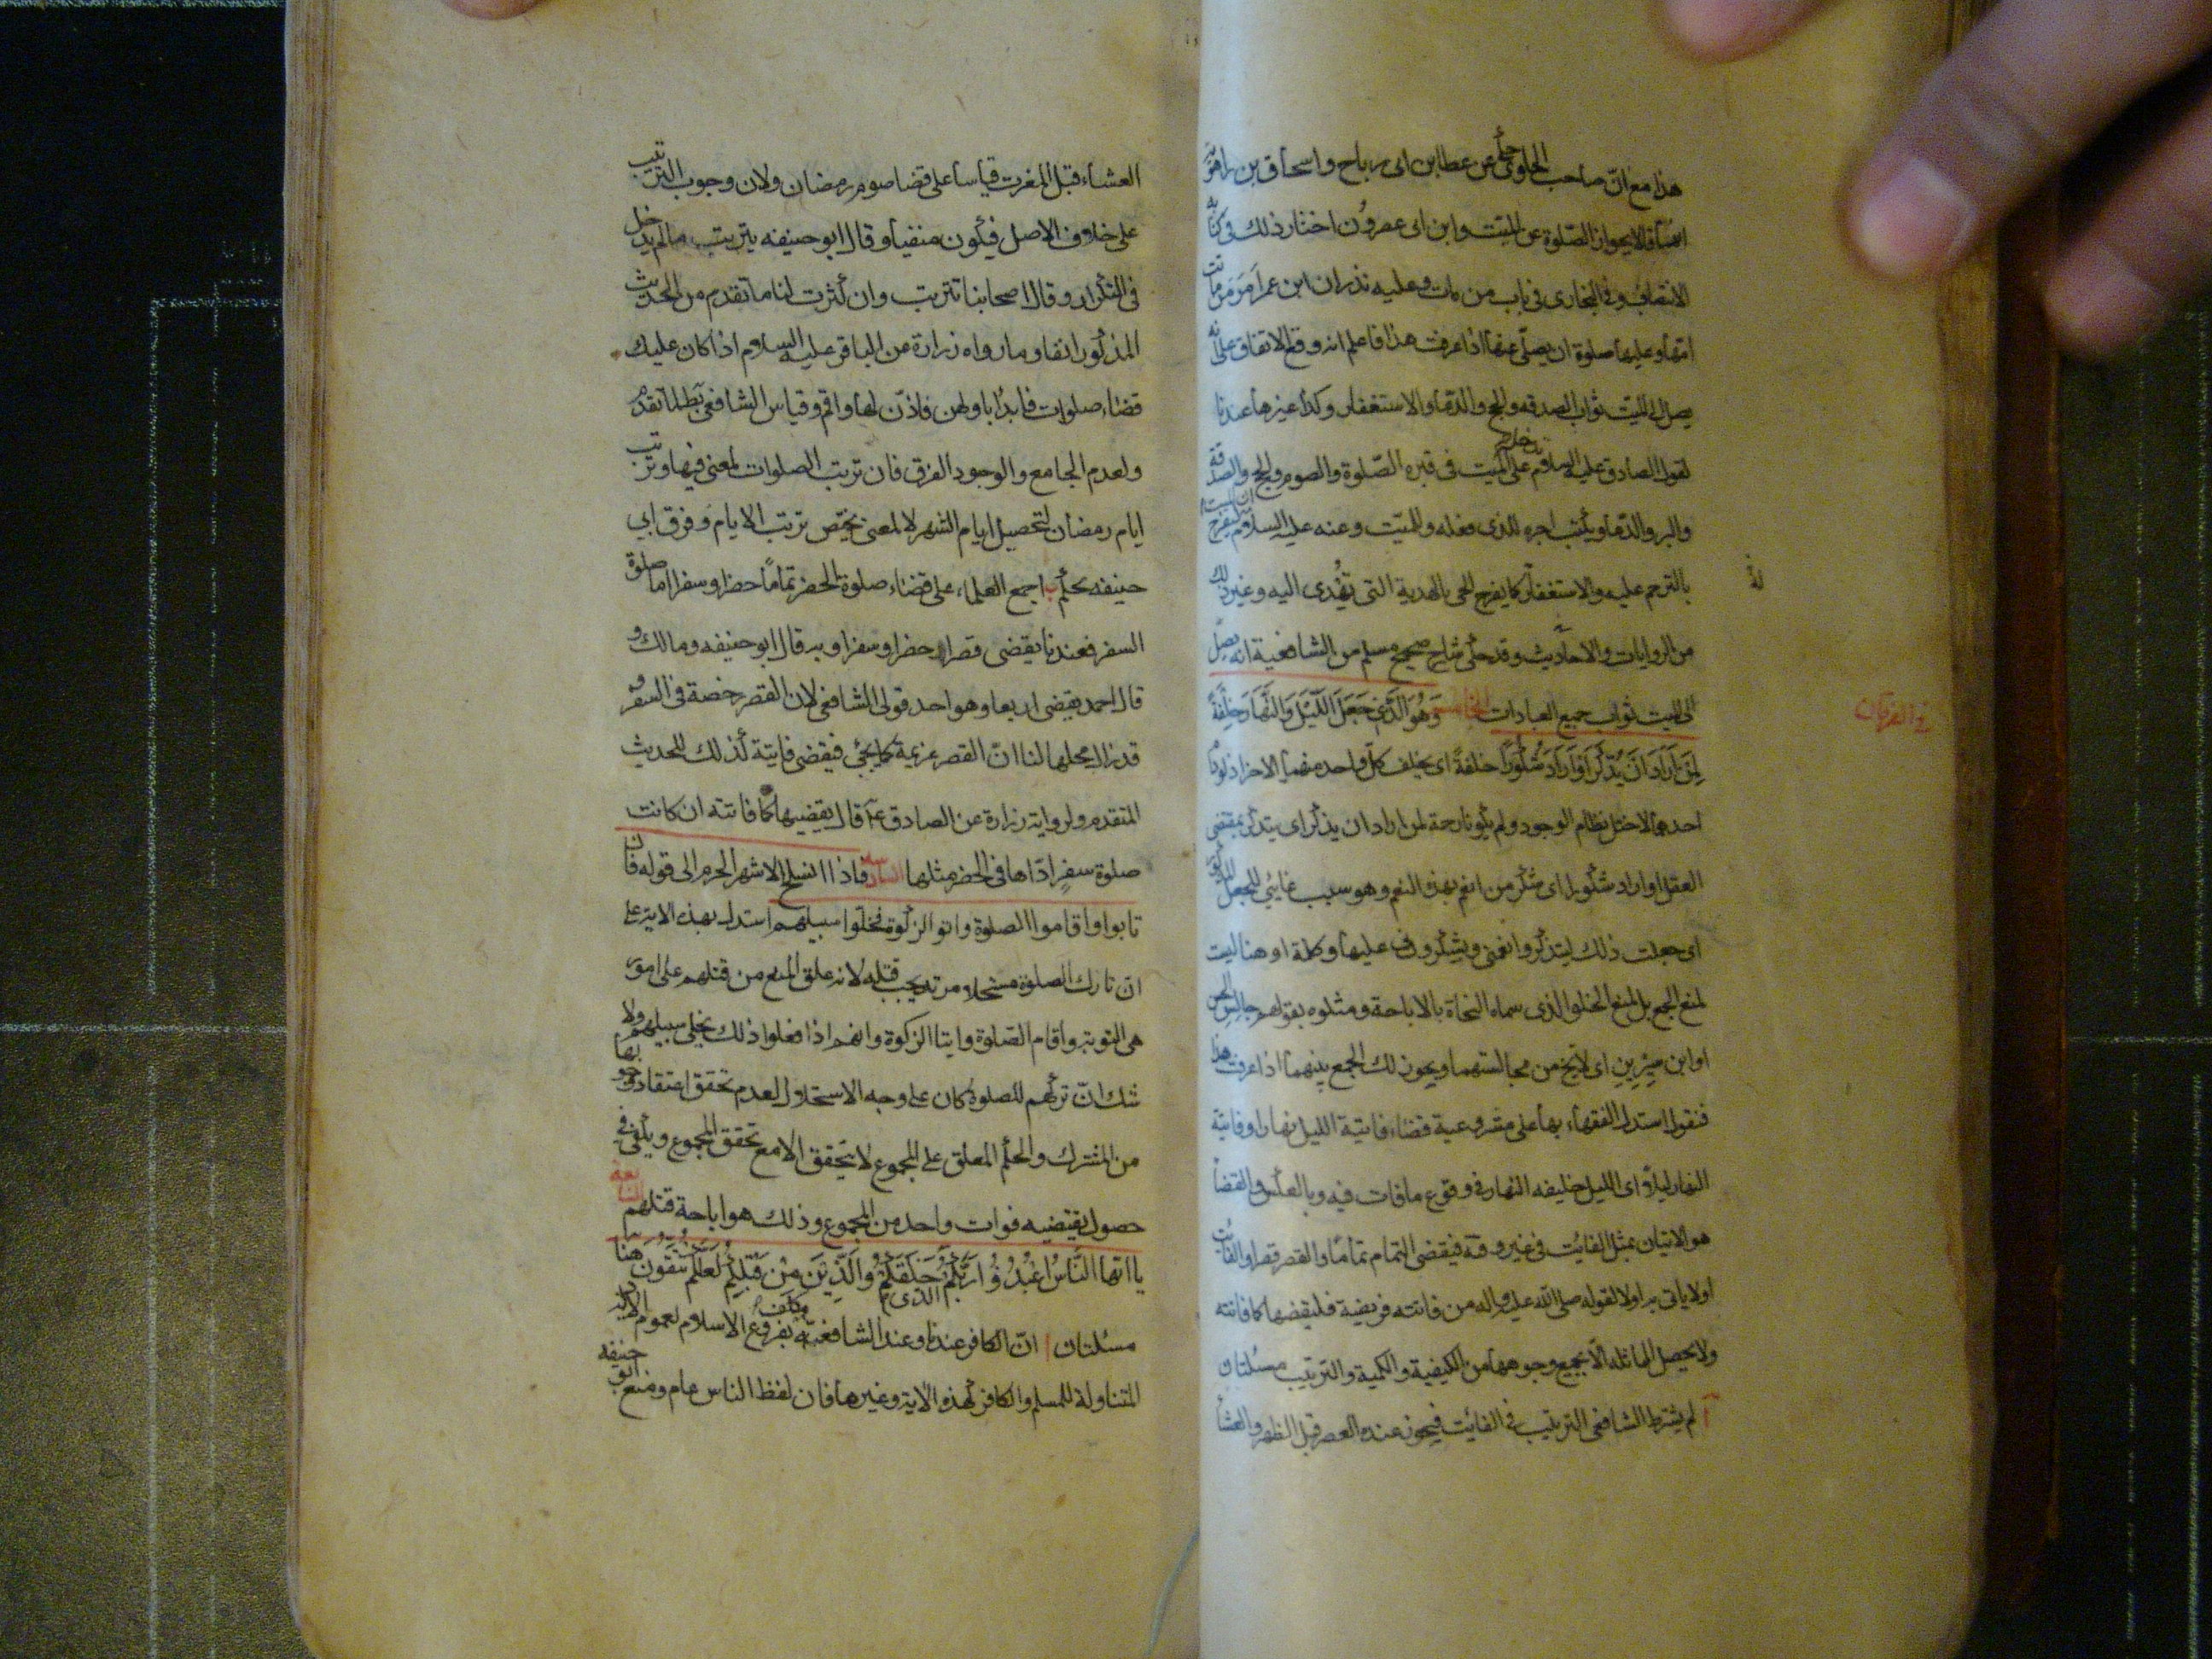 هذا مع ان صاحب الحاوي حكى عن عطا بن ابى رباح واسحاق بن راهويه
انهما قالا بجواز الصلوة عن الميت وابن ابى عصرون اختار ذلك فى كتاب
الانتصاف وفى البخارى فى باب من مات وعليه نذر ان ابن عمر امر من ماتت
امها وعليها صلوة ان يصلى عنها اذا عرفت هذا فاعلم انه وقع الاتفاق على انه
يصل الى الميت ثواب الصدقه والحج والدعا والاستغفار وكذا غيرها عندنا
لقول الصادق عليه السلام يدخل على الميت فى قبره الصلوة والصوم والحج والصدقة
والبر والدعا ويكتب اجره للذى فعله وللميت وعنه عليه السلام ان الميت ليفرح
بالترحم عليه والاستغفار كما يفرح الحى بالهدية التى تهدى اليه وغير ذلك
من الروايات والاحاديث وقد حكى شارح صحيح مسلم من الشافعية انه يصل
الى الميت ثواب جميع العبادات الخامسة وَهُوَ الَّذي جَعَلَ اللَّيْلَ وَالنَّهَارَ خِلْفَةً
فى الفرقان
لِمَنْ اَرَادَ اَنْ يَذَّكَّرَ اَوْ اَرَادَ شُكُورًا خلفةً اى يخلف كل واحد منهما الاخر اذ لو كان
احدهما لاختل نظام الوجود ولم يكونا رحمة لمن اراد ان يذكر اى يتذكر بمقتضى
العقل او اراد شكورا اى شكر من انعم بهذه النعم وهو سبب غايئي للجعل المذكور
اى جعلت ذلك ليتذكروا نعمتى ويشكرونى عليها وكلمة او هنا ليست
لمنع الجمع بل لمنع الخلو الذى سماه النحاة بالاباحة ومثلوه بقولهم جالس الحسن
او ابن سيرين اى لا تخ من مجالستهما ويجوز لك الجمع بينهما اذا عرفت هذا
فنقول استدل الفقهاء بها على مشروعية قضاء فايتة الليل نهارا وفايتة
النهار ليلا اى الليل خليفه النهار فى وقوع ما فات فيه وبالعكس والقضا
هو الاتيان بمثل الفائت فى غير وقته فيقضى التمام تماما والقصر قصرا والفائت
اولا ياتى به اولا لقوله صلى الله عليه واله من فاتته فريضة فليقضها كما فاتته
ولا يحصل المماثله الا بجميع وجوهها من الكيفية والكمية والترتيب مسئلتان
آ لم يشترط الشافعى الترتيب فى الفائت فيجوز عنده العصر قبل الظهر والعشا
العشاء قبل المغرب قياسا على قضا صوم رمضان ولان وجوب الترتيب
على خلاف الاصل فيكون منفيا وقال ابو حنيفه يترتب مالم يدخل
فى التكرار وقال اصحابنا تترتب وان كثرت لنا ما تقدم من الحديث
المذكور انفا وما رواه زرارة عن الباقر عليه السلام اذا كان عليك
قضاء صلوات فابدا باولهن فاذن لها واقم وقياس الشافعى بطل لما تقدم
ولعدم الجامع والوجود الفرق فان ترتب الصلوات لمعنى فيها وترتب
ايام رمضان لتحصيل ايام الشهر لا لمعنى يختص بترتب الايام وفرق ابي
حنيفه تحكم ب اجمع العلماء على قضاء صلوة الحضر تماما حضرا وسفرا اما صلوة
السفر فعندنا يقضى قصرا حضرا وسفرا وبه قال ابو حنيفه ومالك و
قال احمد يقضى اربعا وهو احد قولى الشافعى لان القصر رخصة فى السفر و
قد زال محلها لنا ان القصر عزيمة كما يجئ فيقضى فايتة كذلك للحديث
المتقدم ولرواية زرارة عن الصادق ع قال يقضيها كما فاتته ان كانت
صلوة سفر ادّاها فى الحضر مثلها السادسه فاذا انسلخ الاشهر الحرم الى قوله فان
تابوا واقاموا الصلوة واتوا الزكوة فخلوا سبيلهم استدل بهذه الاية على
ان تارك الصلوة مستحلا مرتد يجب قتله لانه علق المنع من قتلهم على امور
هى التوبة واقام الصلوة وايتا الزكوة وانهم اذا فعلوا ذلك يخلى سبيلهم ولا
شك ان تركهم للصلوة كان على وجه الاستحلال لعدم تحقق اعتقاد وجوبها
من المشرك والحكم المعلق على المجموع لا يتحقق الا مع تحقق المجموع ويكفى فى
حصول نقيضيه فوات واحد من المجموع وذلك هو اباحة قتلهم السابعه
يا ايها النَّاسُ اعْبُدُوا رَبَّكُمُ الذى خَلَقَكُمْ وَالَّذِينَ مِنْ قَبْلِكُمْ لَعَلَّكُمْ تَتَّقُونَ هنا
مسئلتان ا انّ الكافر عندنا وعند الشافعيّه مكلف بفروع الاسلام لعموم الاية
المتناولة للمسلم والكافر كهذه الاية وغيرها فان لفظ الناس عام ومنع ابو حنيفه